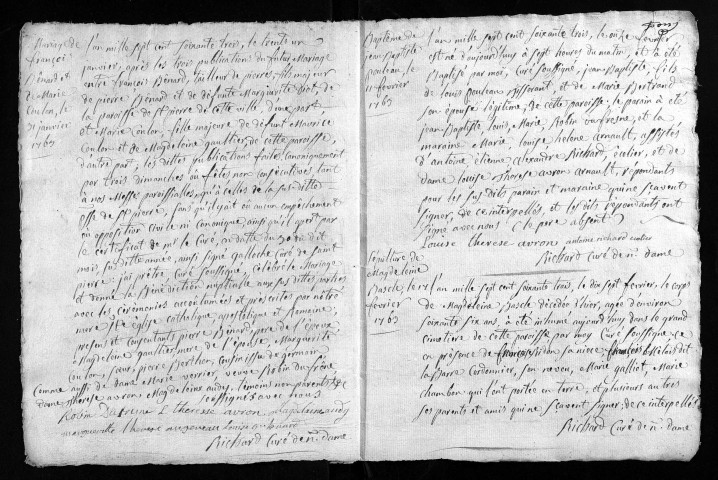 Mariage de
françois
Bénard et
de Marie
Coulon, le
31 janvier
1763
L'an mille sept cent soixante trois, le trente un
janvier, après les trois publication du futur Mariage
entre françois Bénard, tailleur de pierres, fils majeur
de pierre Bénard et de défunte Marguerite
la paroisse de St pierre de cette ville, d'une part
et Marie Coulon, fille majeure de défunt Maurice
Coulon et de Magdeleine gaultier, de cette paroisse,
d'autre part, les dittes publications faites canoniquement
par trois dimanches ou fêtes non consécutives tant
à nos Messes paroissialles, qu'à celles de la sus ditte
psse de St pierre, sans qu'il y ait eu aucun empêchement
ou opposition civile ni canonique, ainsi qu'il apert par
le certificat de mr le Curé, en datte du 30 du dit
mois, susditte année, ainsi signé galloche curé de saint
pierre, j'ai prêtre, Curé soussigné célébré le Mariage
et donné la Bénédiction nuptialle aux sus dittes parties
avec les cérémonies accoutumées et prescrites par nôtre
mere Ste église catholique, apostolique et Romaine,
présent et consentants pierre Bénard, pere de l'époux,
Magdeleine gaultier, mere de l'épouse, Marguerite
Coulon, sœur, pierre Berthon, cousin issu de germain
comme aussi de dame Marie verrier, veuve Robin du frêne,
dame thérese avron, Magdeleine audy, témoins non parents
soussignés avec nous
Robin Dufresne L therese avron magdelaine audy
Richard Curé de n. dame
Baptême de
jean Baptiste
pouleau, le
11 fevrier
1763
L'an mille sept cent soixante trois, le onze fevrier
est né d'aujourd'huy à sept heures du matin, et a été
Baptisé par moi, Curé soussigné, jean Baptiste, fils
de Louis pouleau, et de Marie Bertrand
son épouse légitime, de cette paroisse. le parain a été
jean Baptiste, Louis, Marie, Robin dufresne, et la
maraine Marie, Louise helene arnault, assistés
d'antoine étienne alexandre Richard, écolier, et de
dame Louise Therese avron arnault, répondants
pour les sus dits parain et maraine qui ne sçavent
signer, de ce interpellés, et les dits répondants ont
signé avec nous. le pere absent
Louise therese avron antoine richard
Richard Curé de n. dame
sepulture de
Magdeleine
Basch, le 17
fevrier
1763
L'an mille sept cent soixante trois, le dix sept fevrier, le corps
de Magdeleine Basche décédée d'hier, agée d'environ
soixante six ans, a été inhumé aujourd'huy dans le grand
cimetiere de cette paroisse par moy Curé soussigné, et
en présence de sa niece
la Barre cordonnier, son neveu, Marie galliot, Marie
chambon qui l'ont portée en terre, et plusieurs autres
ses parents et amis qui ne sçavent signer, de ce interpellés
Richard Curé de n. dame